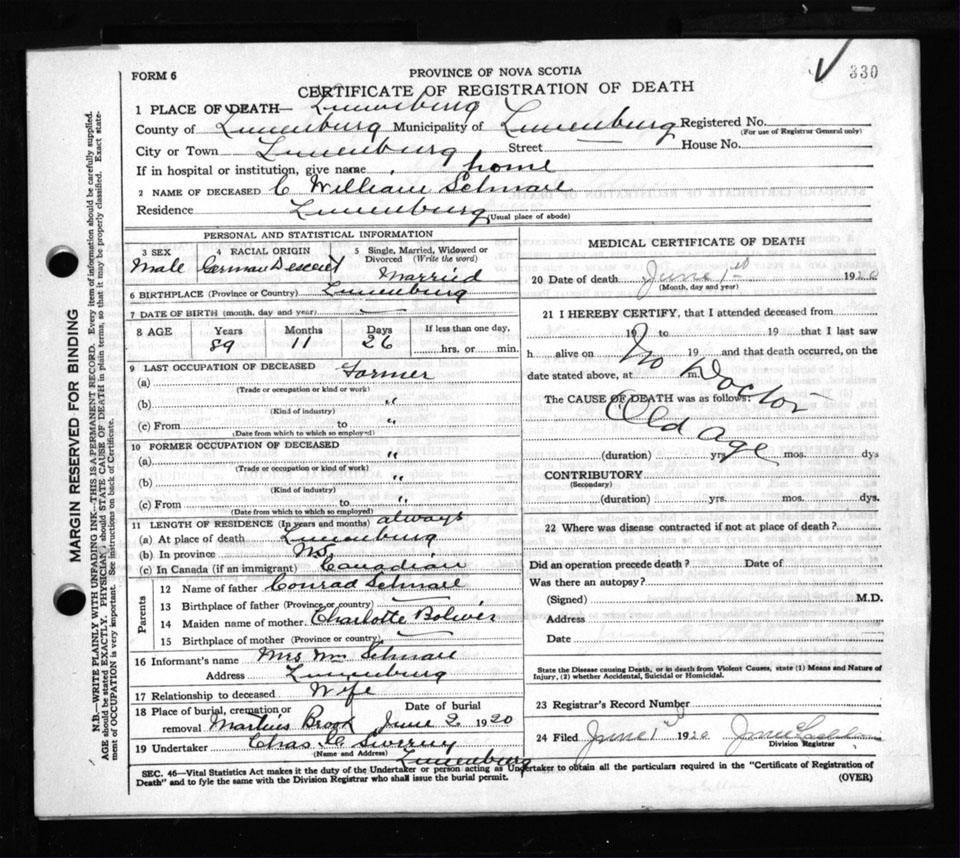 330
FORM 6
PROVINCE OF NOVA SCOTIA
CERTIFICATE OF REGISTRATION OF DEATH
1 PLACE OF DEATH— Lunenburg
County of Lunenburg Municipality of Lunenburg Registered No.
(For use of Registrar General only)
City or Town Lunenburg Street House No.
If in hospital or institution, give name home
2 NAME OF DECEASED C William Schnare
Residence Lunenburg (Usual place of abode)
PERSONAL AND STATISTICAL INFORMATION
3 SEX Male
4 RACIAL ORIGIN German Descent
5 Single, Married, Widowed or Divorced (Write the word) Married
6 BIRTHPLACE (Province or Country) Lunenburg
7 DATE OF BIRTH (month, day and year) —
8 AGE Years Months Days If less than one day,
89 11 26 hrs. or min.
9 LAST OCCUPATION OF DECEASED Farmer
(a)
(Trade or occupation or kind or work)
(b) "
(Kind of industry)
(c) From to "
(Date from which to which so employed)
10 FORMER OCCUPATION OF DECEASED
(a) "
(Trade or occupation or kind of work)
(b) "
(Kind of industry)
(c) From to "
(Date from which to which so employed)
11 LENGTH OF RESIDENCE (In years and months) always
(a) At place of death Lunenburg
(b) In province NS
(c) In Canada (if an immigrant) Canadian
Parents
12 Name of father Conrad Schnare
13 Birthplace of father (Province or country) —
14 Maiden name of mother Charlotte
15 Birthplace of mother (Province or country) —
16 Informant's name Mrs Wm Schnare
Address Lunenburg
17 Relationship to deceased Wife
18 Place of burial, cremation or removal Martins Brook
Date of burial June 2 1920
19 Undertaker Chas
(Name and Address)
Lunenburg
MEDICAL CERTIFICATE OF DEATH
20 Date of death June 1st 1920
(Month, day and year)
21 I HEREBY CERTIFY, that I attended deceased from
19 to 19 that I last saw
h alive on 19 and that death occurred, on the
date stated above, at m.
No Doctor
The CAUSE OF DEATH was as follows:
Old Age
(duration) yrs. mos. dys
CONTRIBUTORY
(Secondary)
(duration) yrs. mos. dys.
22 Where was disease contracted if not at place of death?
Did an operation precede death? Date of
Was there an autopsy?
(Signed) M.D.
Address
Date
State the Disease causing Death, or in death from Violent Causes, state (1) Means and Nature of
Injury, (2) whether Accidental, Suicidal or Homicidal.
23 Registrar's Record Number
24 Filed June 1 1920
Division Registrar
SEC. 46—Vital Statistics Act makes it the duty of the Undertaker or person acting as Undertaker to obtain all the particulars required in the "Certificate of Registration of
Death" and to fyle the same with the Division Registrar who shall issue the burial permit. (OVER)
MARGIN RESERVED FOR BINDING
N.B.—WRITE PLAINLY WITH UNFADING INK—THIS IS A PERMANENT RECORD. Every item of information should be carefully supplied.
AGE should be stated EXACTLY. PHYSICIANS should STATE CAUSE OF DEATH in plain terms, so that it may be properly classified. Exact state-
ment of OCCUPATION is very important. See instructions on back of Certificate.